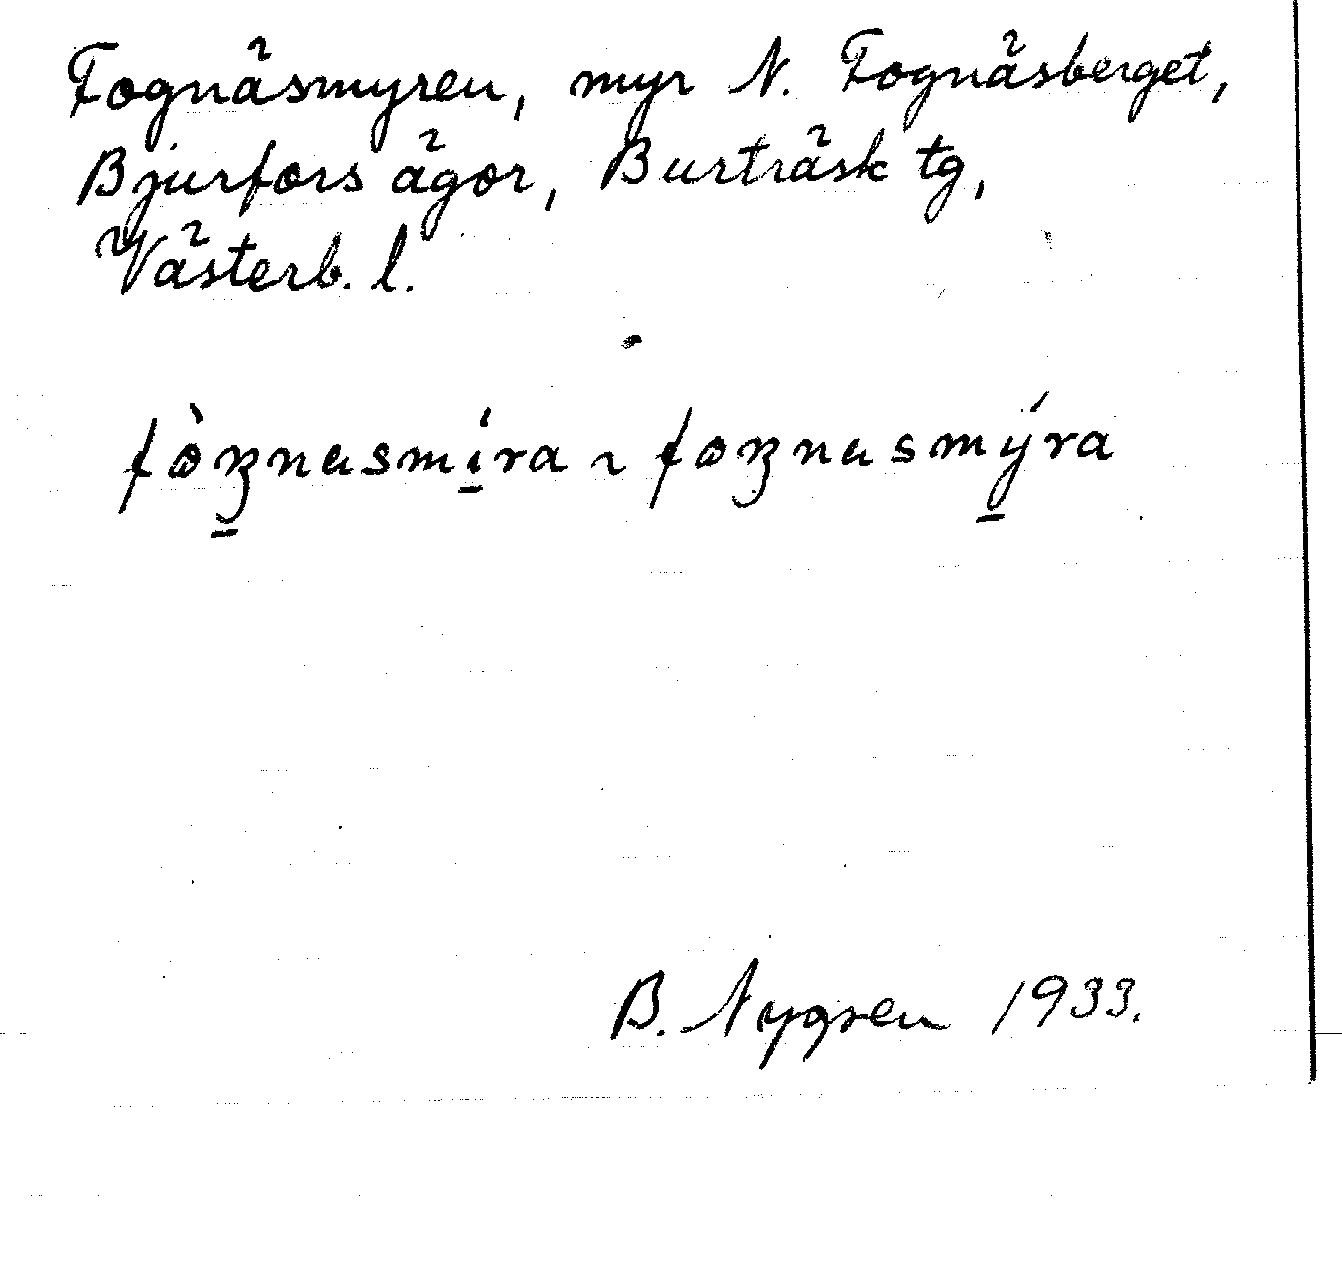 Fognäsmyren, myr N. Fognäsberget,
Bjurfors ägor, Burträsk tg,
Västerb. l.
fòʒ̱nasmí̱ra ~ foʒnasmý̱ra
B. Nygren 1933.